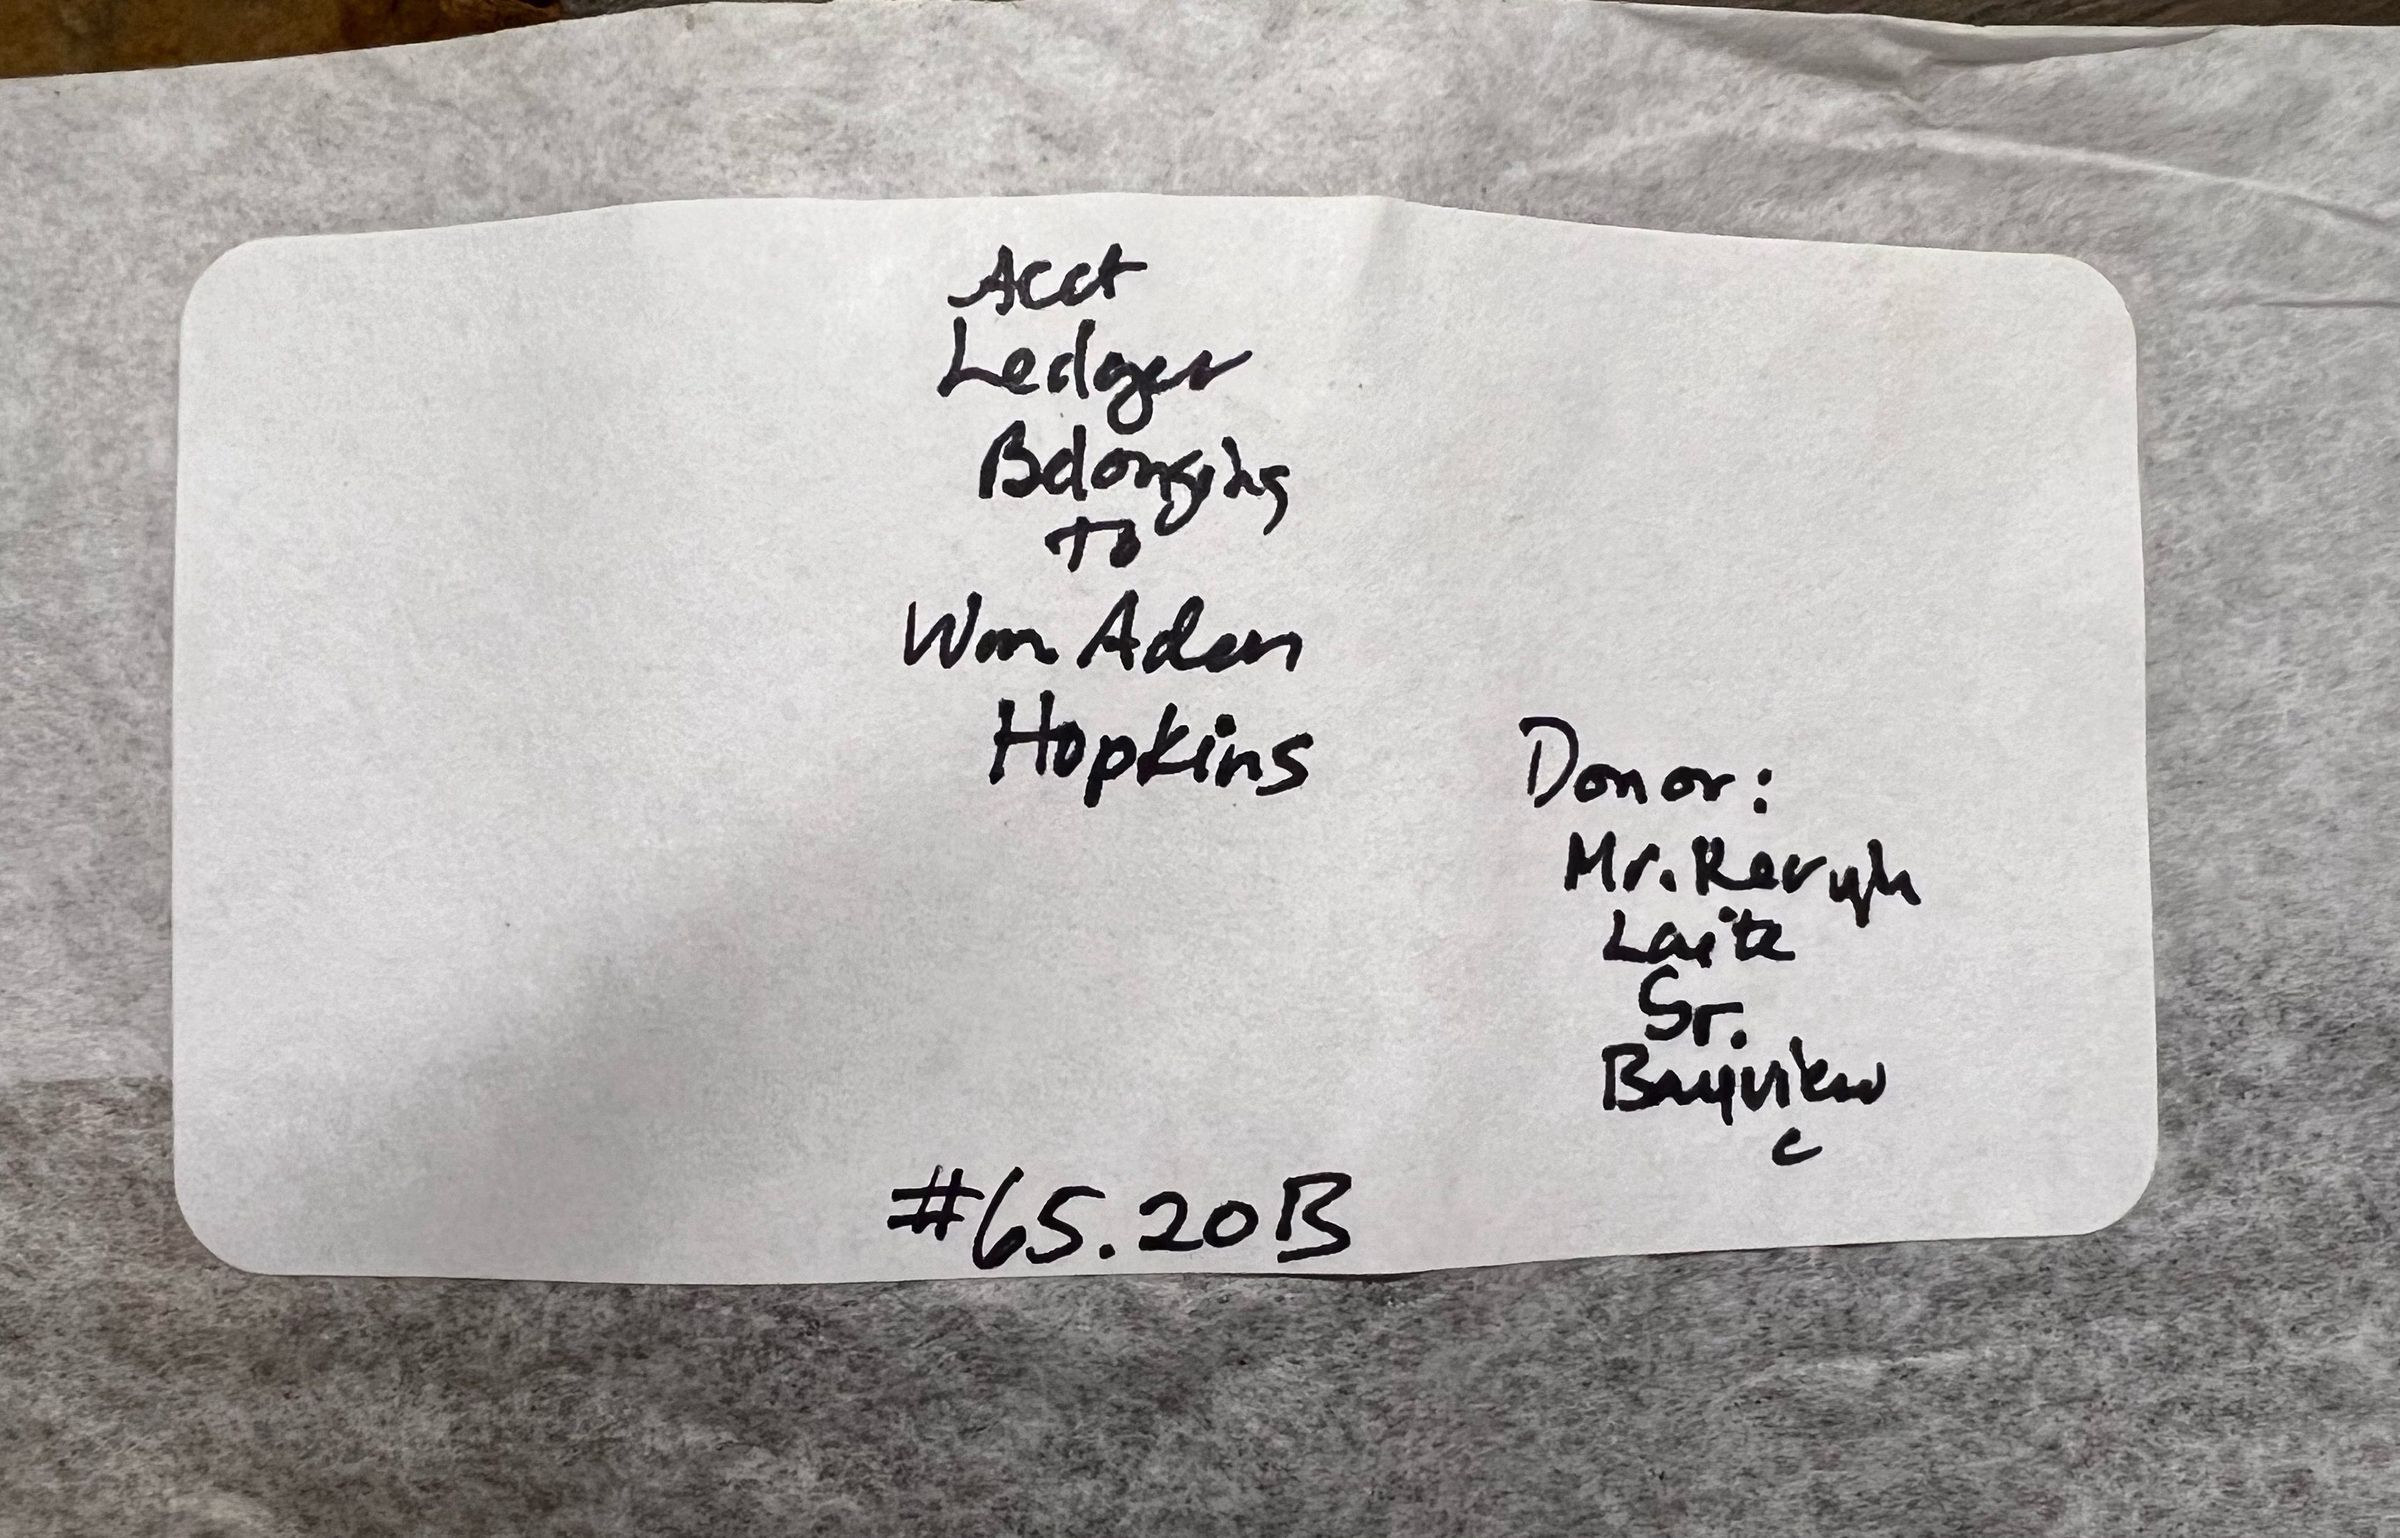 Acct
Ledger
Belonging
to
Wm Aden
Hopkins
Donor:
Mr.
Laite
Sr.
Bayview
c
#65.20B